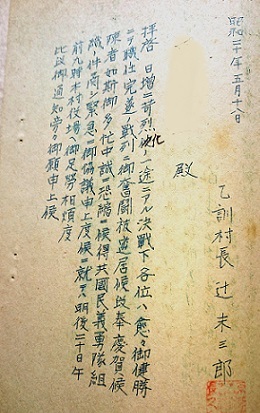 昭和二十年五月十八日
乙訓村長 辻 末三郎
殿
拝啓 日増ニ苛烈化ノ一途ニアル決戦下各位ハ愈々御健勝
ニテ職任完遂ノ戦列ニ御奮闘被遊居候段奉慶賀候
陳者如斯御多忙中誠ニ恐縮ニ候得共國民義勇隊組
織ノ件ニ関シ緊急ニ御協議申上度候ニ就テハ明後二十日午
前九時本村役場ヘ御足労相煩度
此段御通知旁々御願申上候